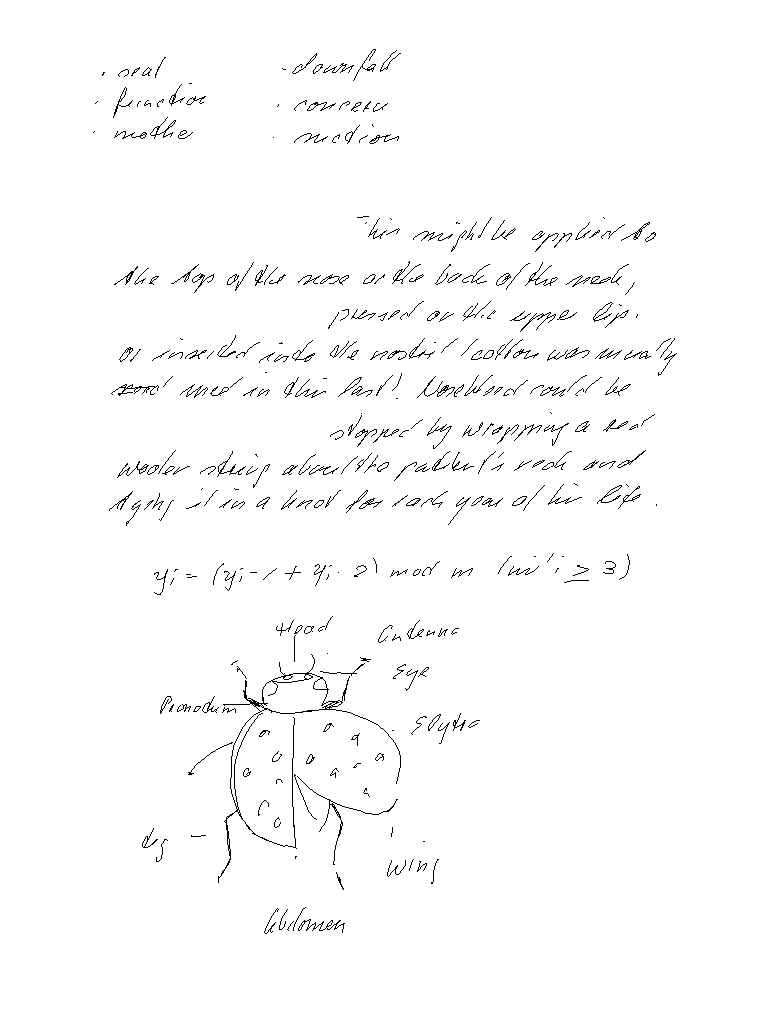 · seal
· function
· mothe
· downfall
· concern
· suction
This might be applied to
the top of the nose or the back of the neck,
pressed on the upper lip.
or inserted into the nostril (cotton was usually
used in this last). Nosebleed could be
stopped by wrapping a red
woolen string about the patient's neck and
tying it in a knot for each year of his life.
yi = (yi-1 + yi-2) mod m (mit i ≥ 3)
Head
Antenna
Eye
Pronotum
Elytra
Leg
Wing
Abdomen